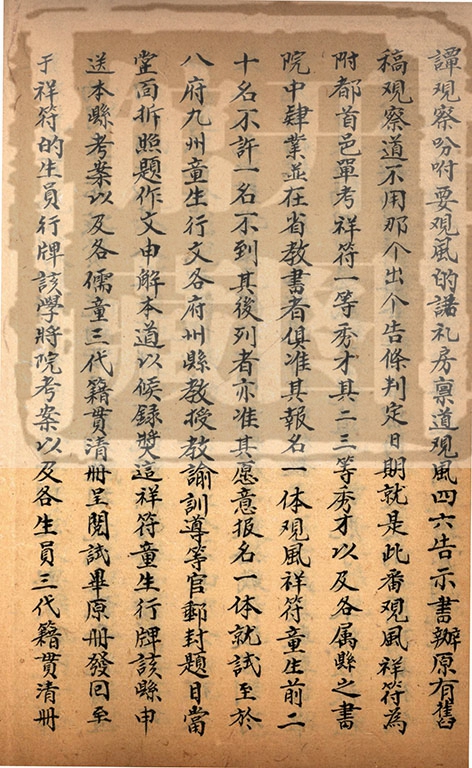 譚觀察吩咐要观風的諸礼房禀道观風四六告示書辦原有舊
稿观察道不用那个出个告條判定日期就是此番观風祥符為
附都首邑單考祥符一等秀才其二三等秀才以及各属縣之書
院中肄業並在省教書者俱准其報名一体观風祥符童生前二
十名不許一名不到其後列者亦准其愿意报名一体就試至於
八府九州童生行文各府州縣教授教諭訓導等官郵封題目當
堂面拆照題作文申解本道以候録獎這祥符童生行牌該縣申
送本縣考案以及各儒童三代籍貫清册呈閱試畢原册發回至
于祥符的生員行牌該學將院考案以及各生員三代籍貫清册